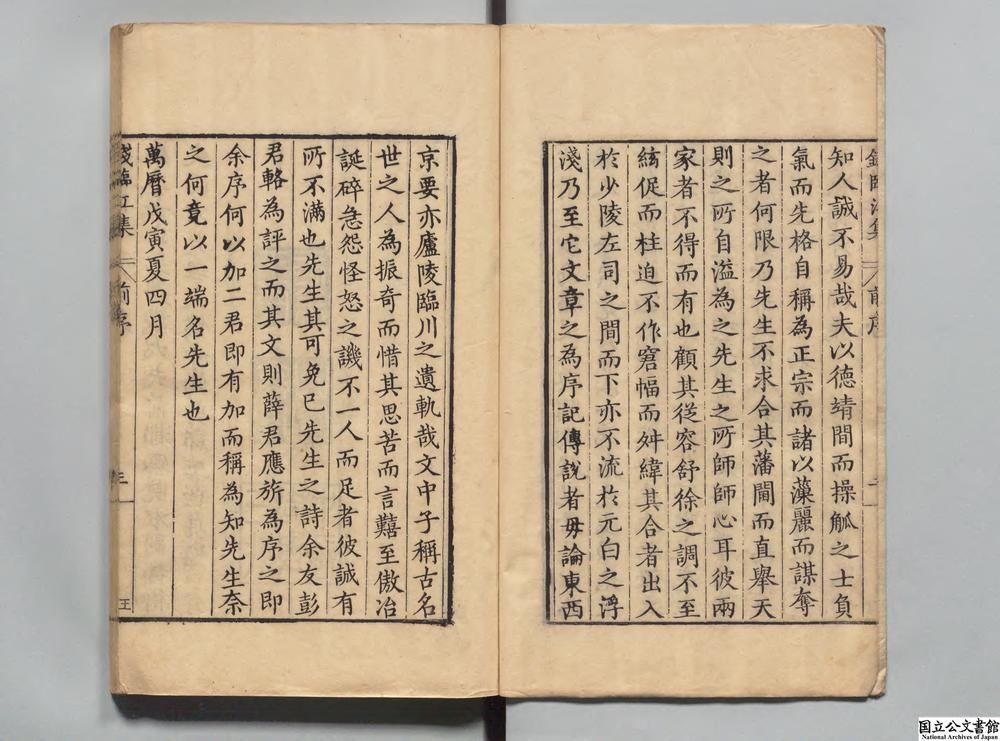 知人誠不易哉夫以德靖間而操觚之士負
氣而先格自稱為正宗而諸以藻麗而謀奪
之者何限乃先生不求合其藩閫而直舉天
則之所自溢為之先生之所師師心耳彼兩
家者不得而有也顧其從容舒徐之調不至
絃促而柱迫不作窘幅而舛緯其合者出入
於少陵左司之間而下亦不流於元白之浮
淺乃至它文章之為序記傳說者毋論東西
京要亦廬陵臨川之遺軌哉文中子稱古名
世之人為振奇而惜其思苦而言囏至傲冶
誕碎急怨怪怒之譏不一人而足者彼誠有
所不滿也先生其可免已先生之詩余友彭
君輅為評之而其文則薛君應旂為序之即
余序何以加二君即有加而稱為知先生奈
之何竟以一端名先生也
萬曆戊寅夏四月
錢臨江集
前序
三
王
国立公文書館
National Archives of Japan